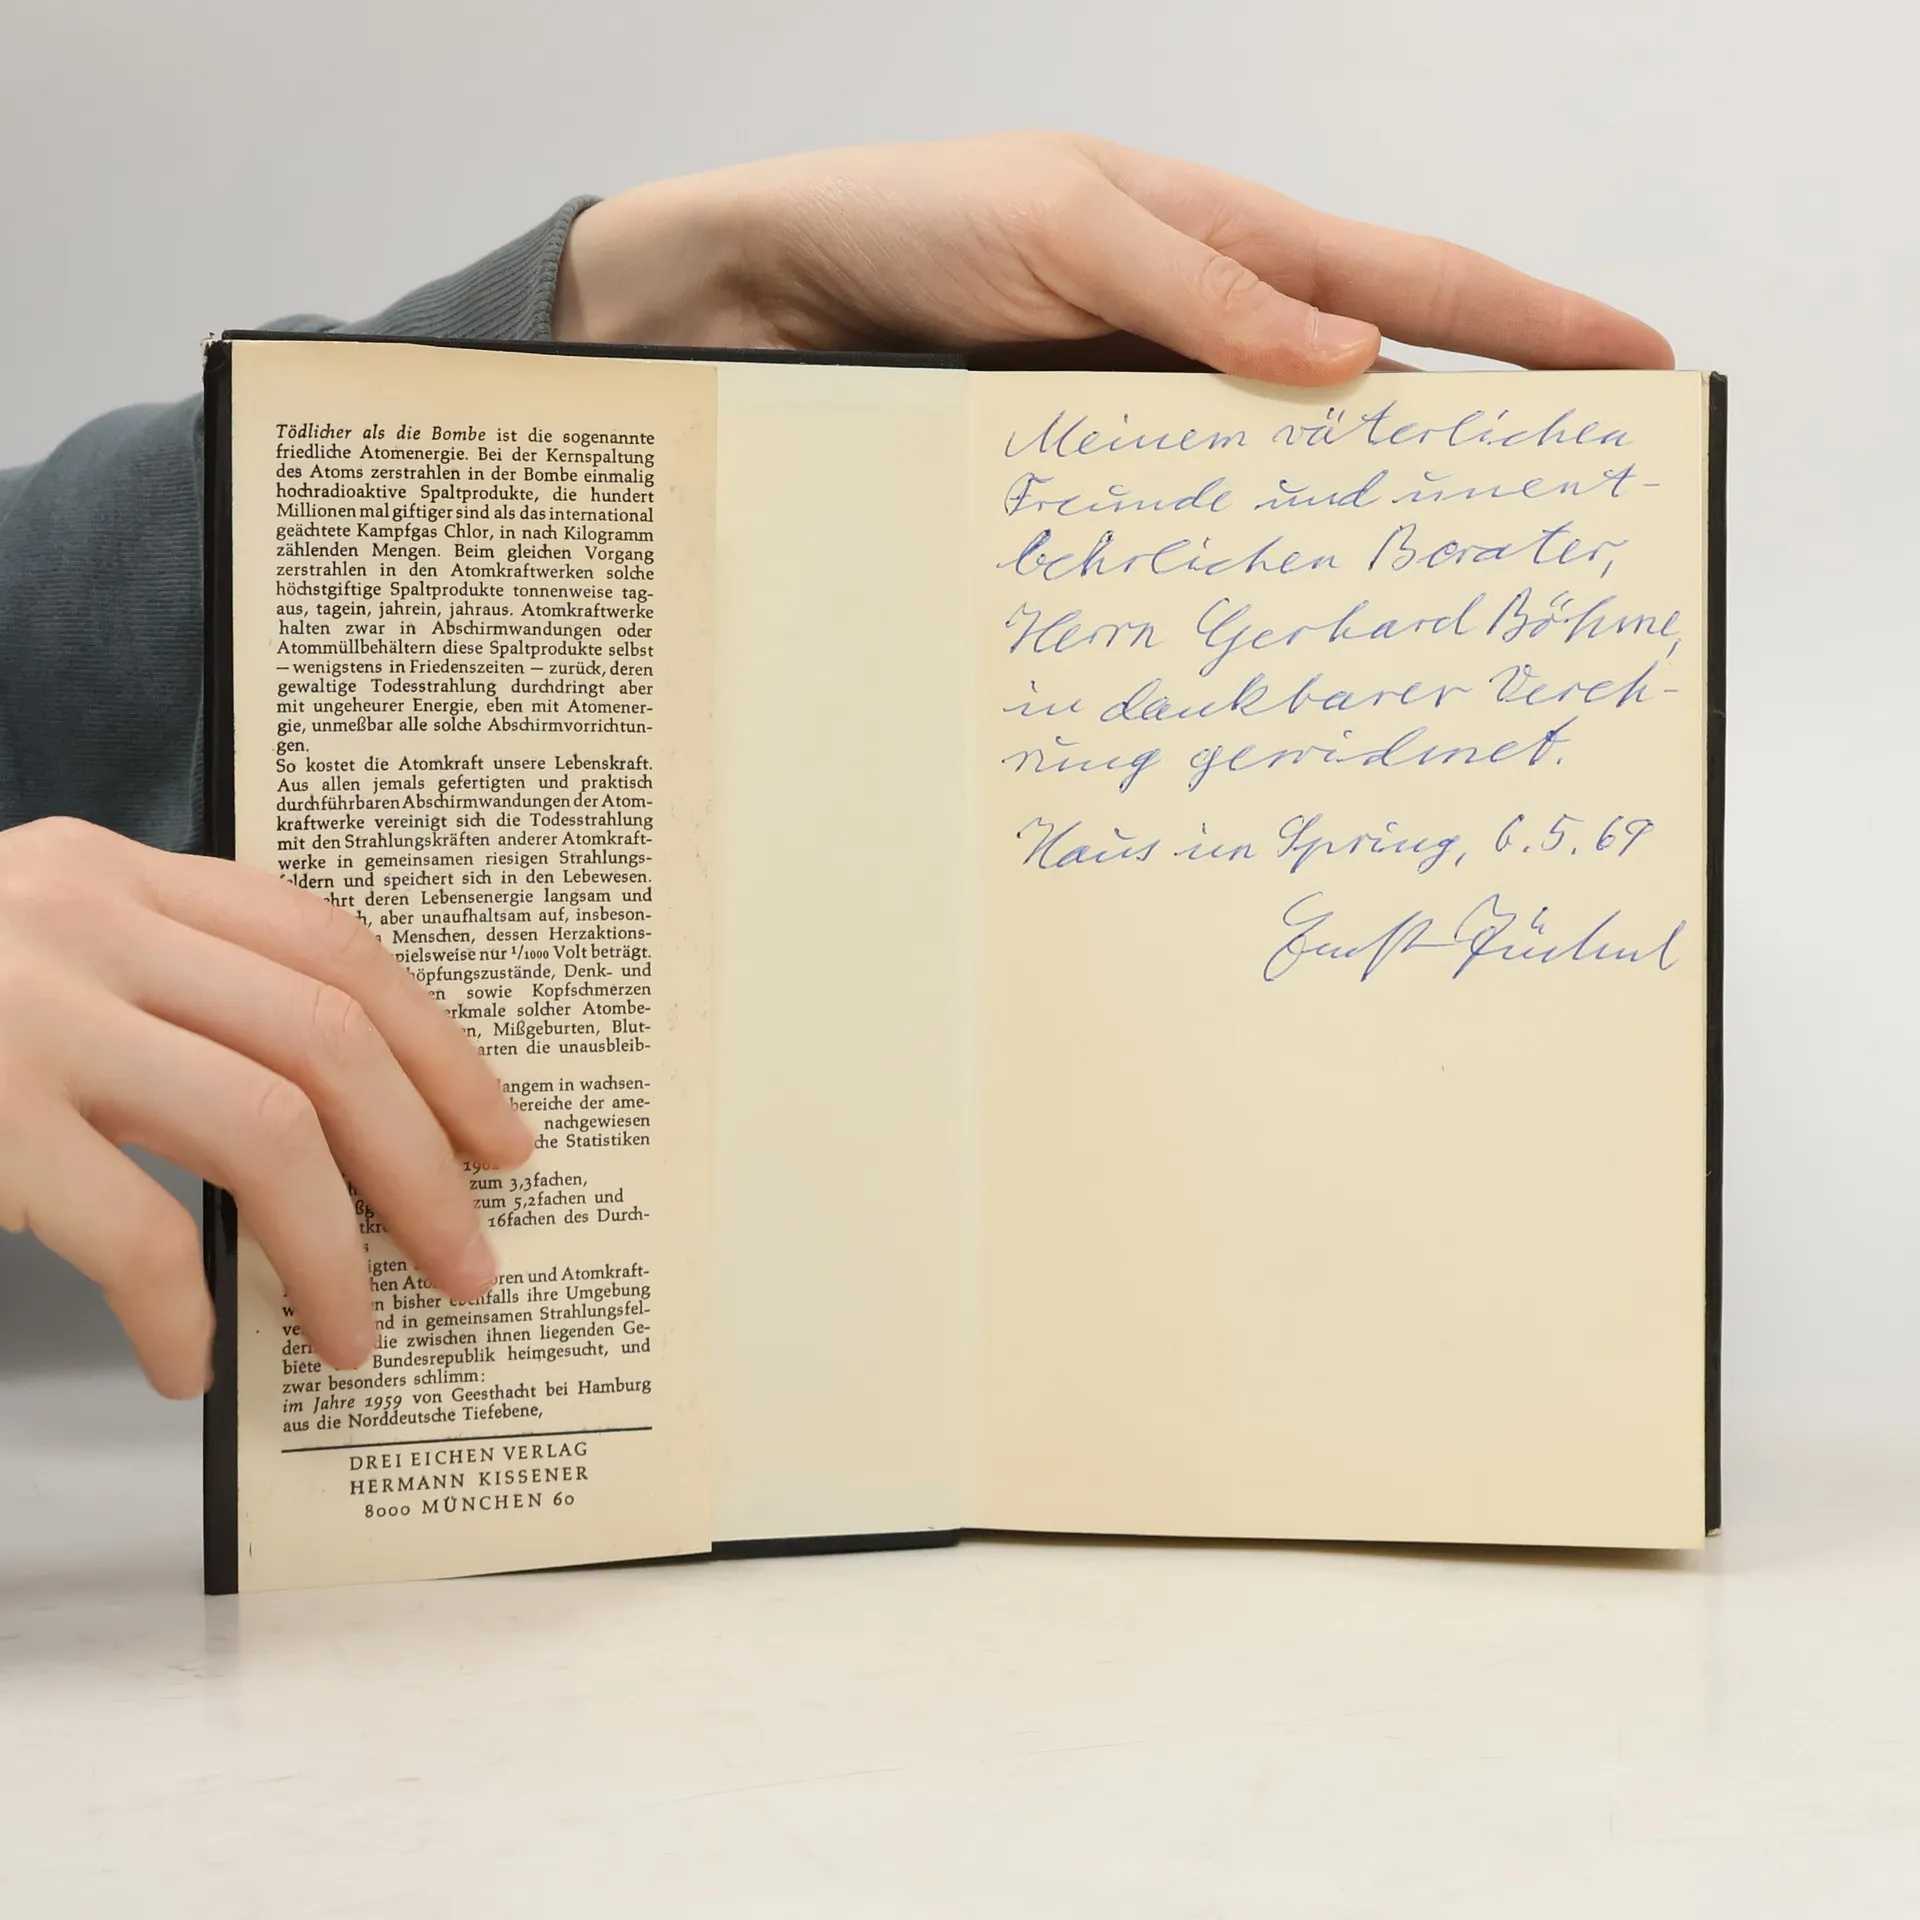 Tödlicher als die Bombe ist die sogenannte
friedliche Atomenergie. Bei der Kernspaltung
des Atoms zerstrahlen in der Bombe einmalig
hochradioaktive Spaltprodukte, die hundert
Millionen mal giftiger sind als das international
geächtete Kampfgas Chlor, in nach Kilogramm
zählenden Mengen. Beim gleichen Vorgang
zerstrahlen in den Atomkraftwerken solche
höchstgiftige Spaltprodukte tonnenweise tag-
aus, tagein, jahrein, jahraus. Atomkraftwerke
halten zwar in Abschirmwandungen oder
Atommüllbehältern diese Spaltprodukte selbst
— wenigstens in Friedenszeiten — zurück, deren
gewaltige Todesstrahlung durchdringt aber
mit ungeheurer Energie, eben mit Atomener-
gie, unmeßbar alle solche Abschirmvorrichtun-
gen.
So kostet die Atomkraft unsere Lebenskraft.
Aus allen jemals gefertigten und praktisch
durchführbaren Abschirmwandungen der Atom-
kraftwerke vereinigt sich die Todesstrahlung
mit den Strahlungskräften anderer Atomkraft-
werke in gemeinsamen riesigen Strahlungs-
feldern und speichert sich in den Lebewesen.
deren Lebensenergie langsam und
aber unaufhaltsam auf, insbeson-
Menschen, dessen Herzaktions-
nur 1/1000 Volt beträgt.
Denk- und
sowie Kopfschmerzen
solcher Atombe-
Mißgeburten, Blut-
arten die unausbleib-
langem in wachsen-
bereiche der ame-
nachgewiesen
Statistiken
zum 3,3fachen,
zum 5,2fachen und
16fachen des Durch-
und Atomkraft-
bisher ebenfalls ihre Umgebung
in gemeinsamen Strahlungsfel-
die zwischen ihnen liegenden Ge-
biete Bundesrepublik heimgesucht, und
zwar besonders schlimm:
im Jahre 1959 von Geesthacht bei Hamburg
aus die Norddeutsche Tiefebene,
DREI EICHEN VERLAG
HERMANN KISSENER
8000 MÜNCHEN 60
Meinem väterlichen
Freunde und unent-
behrlichen Berater,
Herrn Gerhard Böhme,
in dankbarer Vereh-
rung gewidmet.
Haus im Spring, 6.5.69
Ernst